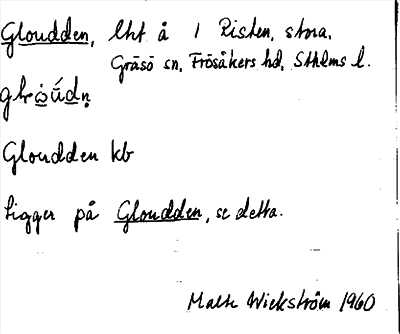 Gloudden, lht å 1 Risten, stora,
Gräsö sn, Frösåkers hd, Sthlms l.
Gloudden kb
ligger på Gloudden, se detta.
Malte Wickström 1960